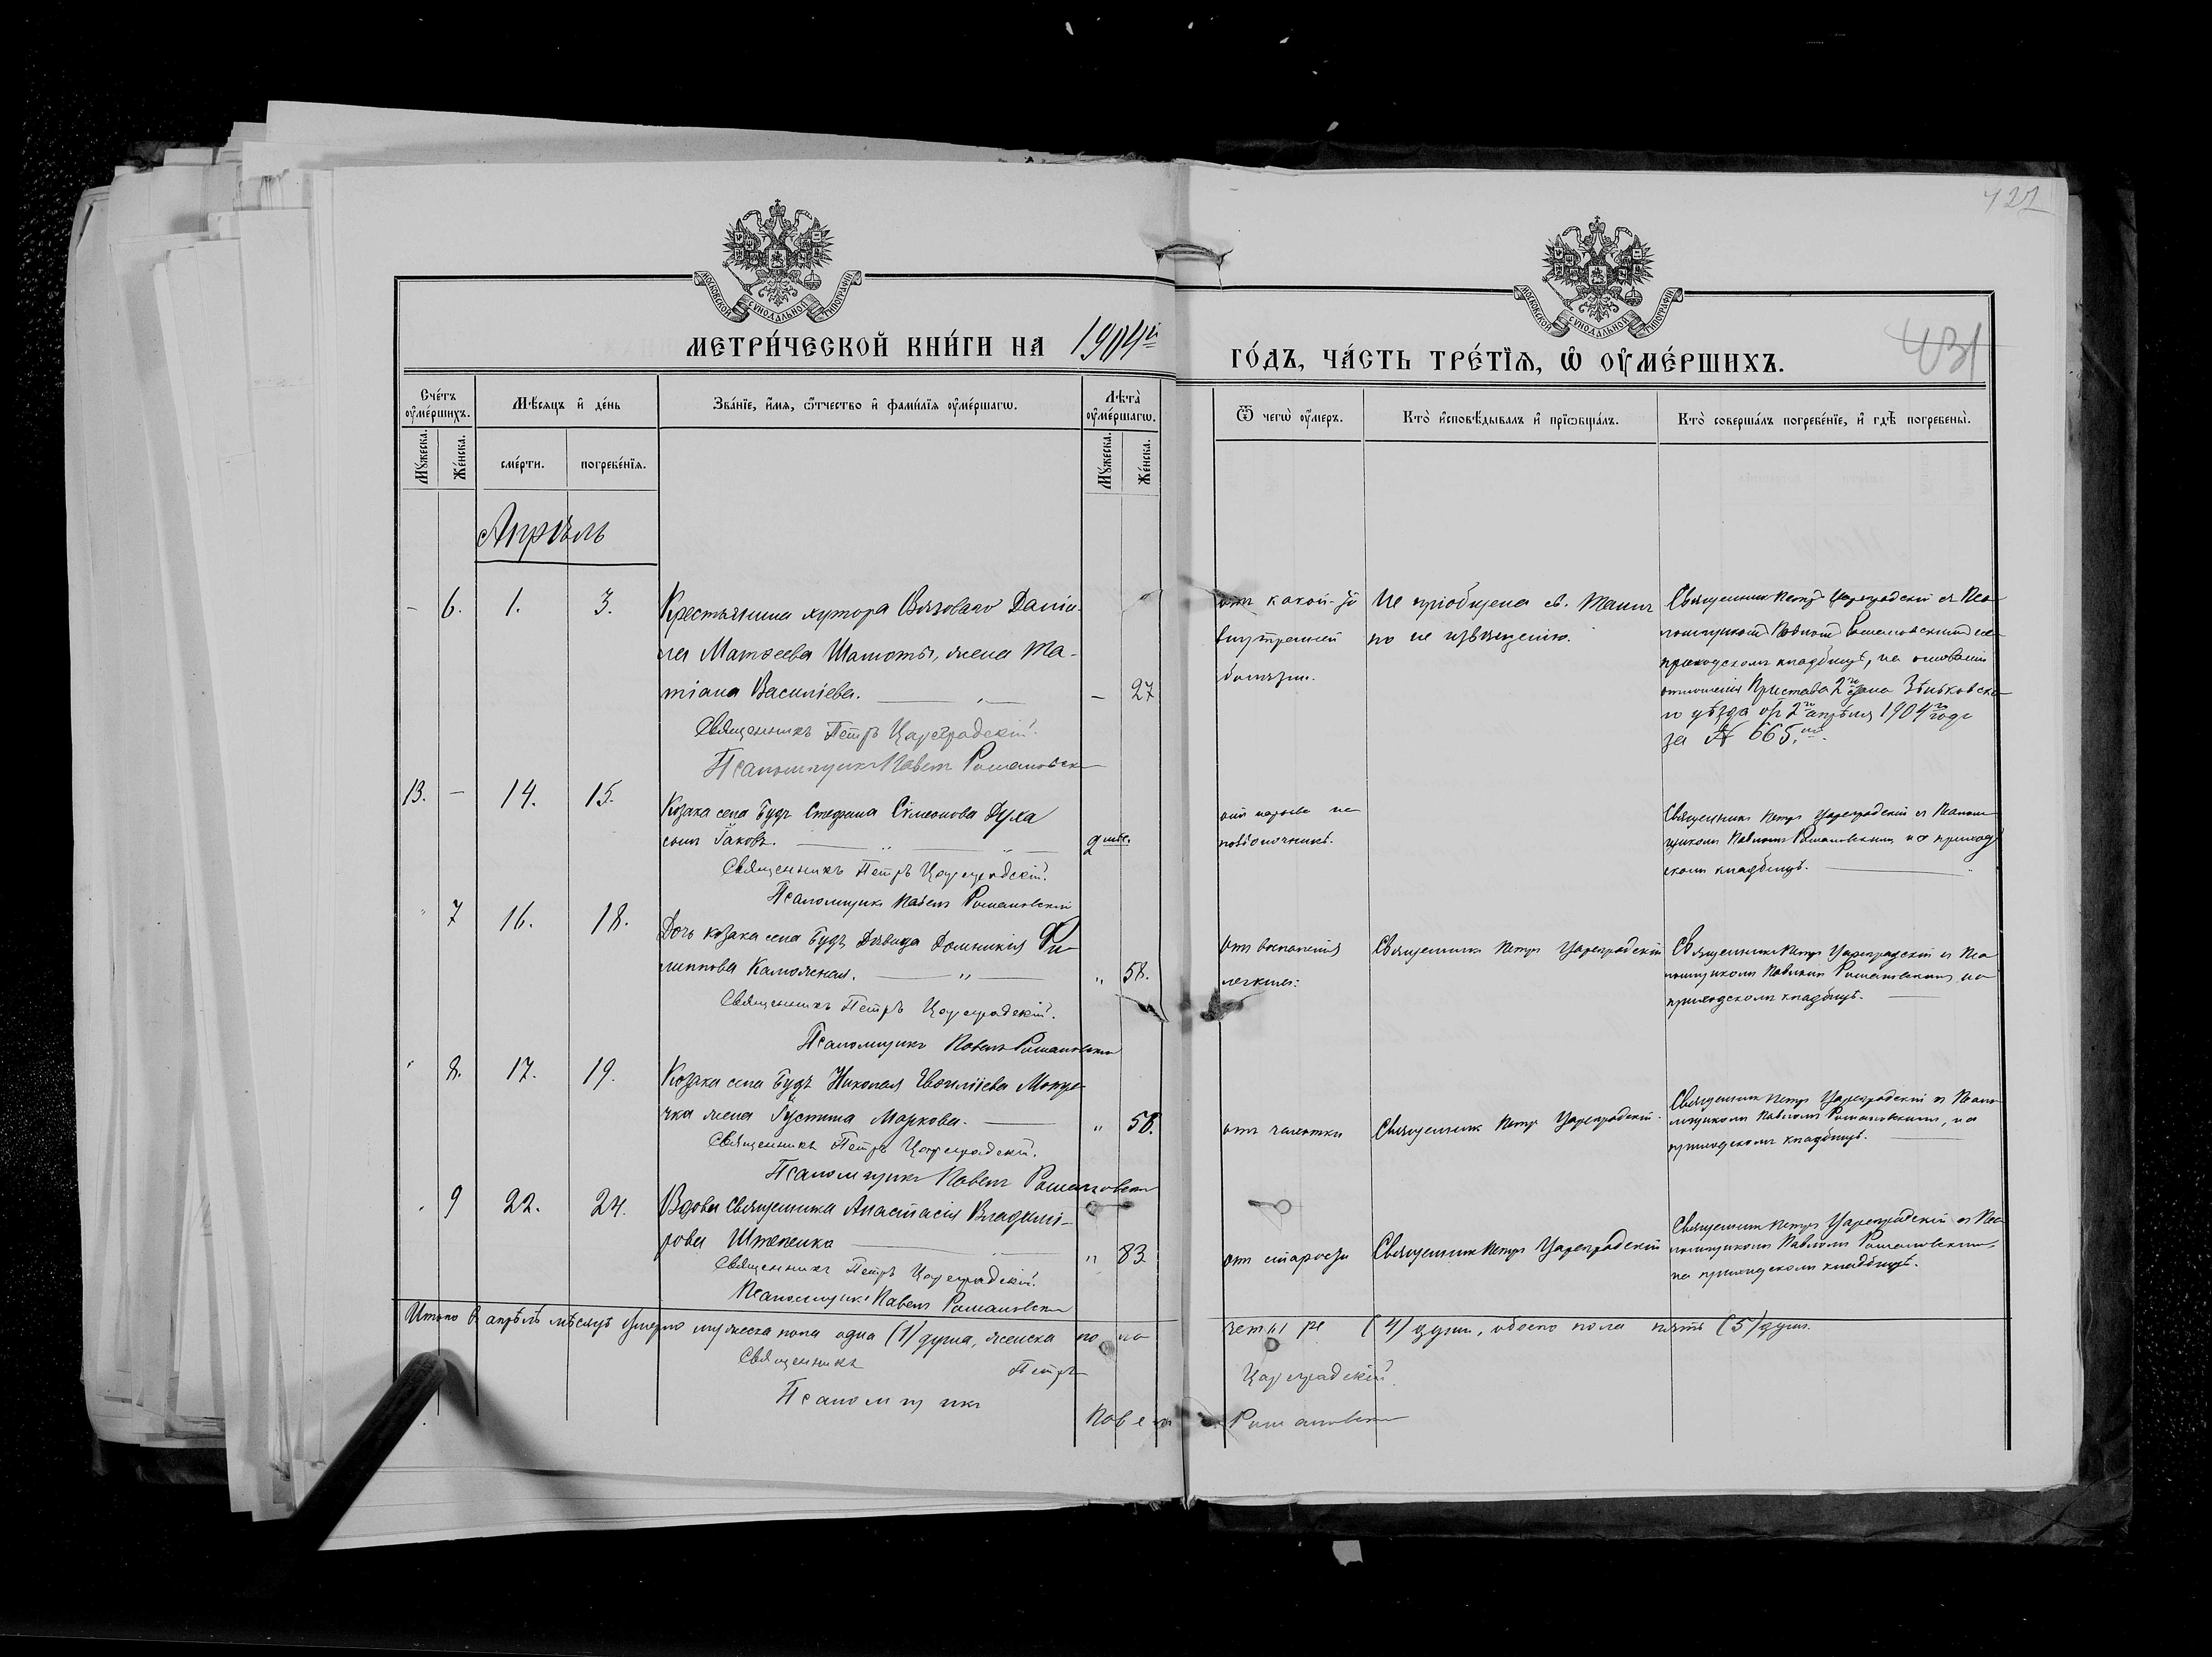 427
МОСКОВСКОЙ СѴНОДАЛЬНОЙ ТИПОГРАФІИ
МОСКОВСКОЙ СѴНОДАЛЬНОЙ ТИПОГРАФІИ
МЕТРИ́ЧЕСКОЙ КНИ́ГИ НА 1904й
ГО́ДЪ, ЧА́СТЬ ТРЕ́ТЇѦ, Ѡ ОУМЕ́РШИХЪ.
431
Сче́тъ оуме́ршихъ.
Мѣ́сѧцъ и де́нь
Зва́нїе, и́мѧ, ѻ́тчество и фами́лїѧ оуме́ршагѡ.
Лѣта̀ оуме́ршагѡ.
Ѿ чегѡ̀ оу́меръ.
Кто̀ исповѣ́дывалъ и прїѡбща́лъ.
Кто̀ соверша́лъ погребе́нїе, и гдѣ̀ погребены̀.
Мꙋ́жеска.
Же́нска.
сме́рти.
погребе́нїѧ.
Мꙋ́жеска.
Же́нска.
Апрѣль
- 6. 1. 3. Крестьянина хутора Вязоваго Даніи-
ла Матѳеева Шаматы, жена Та-
тіана Василіева. - 27
Священникъ Петръ Цареградскій.
Псаломщикъ Павелъ Романовскій
отъ какой-то
внутренней
болѣзни.
Не пріобщена св. Таинъ
по не извѣщенію.
Священникъ Петръ Цареградскій съ Пса-
ломщикомъ Павломъ Романовскимъ на
приходскомъ кладбищѣ, на основаніи
отношенія Пристава 2го стана Зѣньковска-
го уѣзда отъ 2го апрѣля 1904го года
за № 665.
13. - 14. 15. Козака села Будъ Стефана Сѵмеонова Духа
сынъ Іаковъ. 9 мѣс.
Священникъ Петръ Цареградскій.
Псаломщикъ Павелъ Романовскій
Священникъ Петръ Цареградскій съ Псалом-
щикомъ Павломъ Романовскимъ на приход-
скомъ кладбищѣ.
" 7 16. 18. Дочь козака села Будъ Дѣвица Домникія Фи-
липпова Каможная. " 58.
Священникъ Петръ Цареградскій.
Псаломщикъ Павелъ Романовскій
Отъ воспаленія
легкихъ.
Священникъ Петръ Цареградскій
Священникъ Петръ Цареградскій съ Пса-
ломщикомъ Павломъ Романовскимъ, на
приходскомъ кладбищѣ.
" 8. 17. 19. Козака села Будъ Николая
жена Іустина Маркова. " 58.
Священникъ Петръ Цареградскій.
Псаломщикъ Павелъ Романовскій
отъ чахотки
Священникъ Петръ Цареградскій.
Священникъ Петръ Цареградскій съ Псало-
мщикомъ Павломъ Романовскимъ, на
приходскомъ кладбищѣ.
" 9 22. 24. Вдова Священника Анастасія Владимі-
рова Штепенко " 83
Священникъ Петръ Цареградскій.
Псаломщикъ Павелъ Романовскій
отъ старости
Священникъ Петръ Цареградскій
Священникъ Петръ Цареградскій съ Пса-
ломщикомъ Павломъ Романовскимъ,
на приходскомъ кладбищѣ.
Итого въ апрѣлѣ мѣсяцѣ умерло мужеска пола одна (1) душа, женска пола четыре (4) души, обоего пола пять (5) душъ.
Священникъ Петръ Цареградскій.
Псаломщикъ Павелъ Романовскій